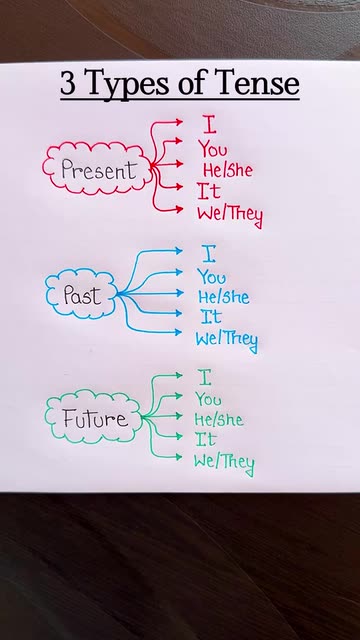 3 Types of Tense
Present
I
You
He/She
It
We/They
Past
I
You
He/She
It
We/They
Future
I
You
He/She
It
We/They